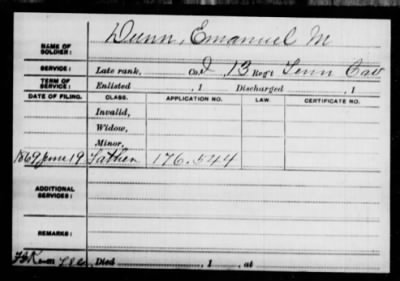 Dunn, Emanuel M
NAME OF SOLDIER:
SERVICE: Late rank, Co. I, 13 Reg't Tenn Cav
TERM OF SERVICE: Enlisted , 1 Discharged , 1
DATE OF FILING. CLASS. APPLICATION NO. LAW. CERTIFICATE NO.
Invalid,
Widow,
Minor,
1869 June 19 Father 176.544
ADDITIONAL SERVICES:
REMARKS:
Died , 1 , at